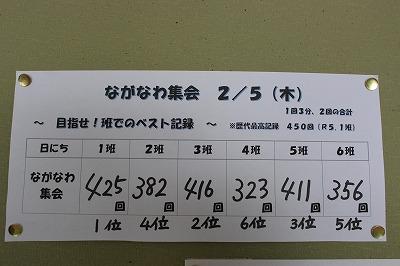 ながなわ集会 2/5(木)
1回3分、2回の合計
~ 目指せ!班でのベスト記録 ~ ※歴代最高記録 450回(R5.1班)
日にち 1班 2班 3班 4班 5班 6班
ながなわ集会 425回 382回 416回 323回 411回 356回
1位 4位 2位 6位 3位 5位